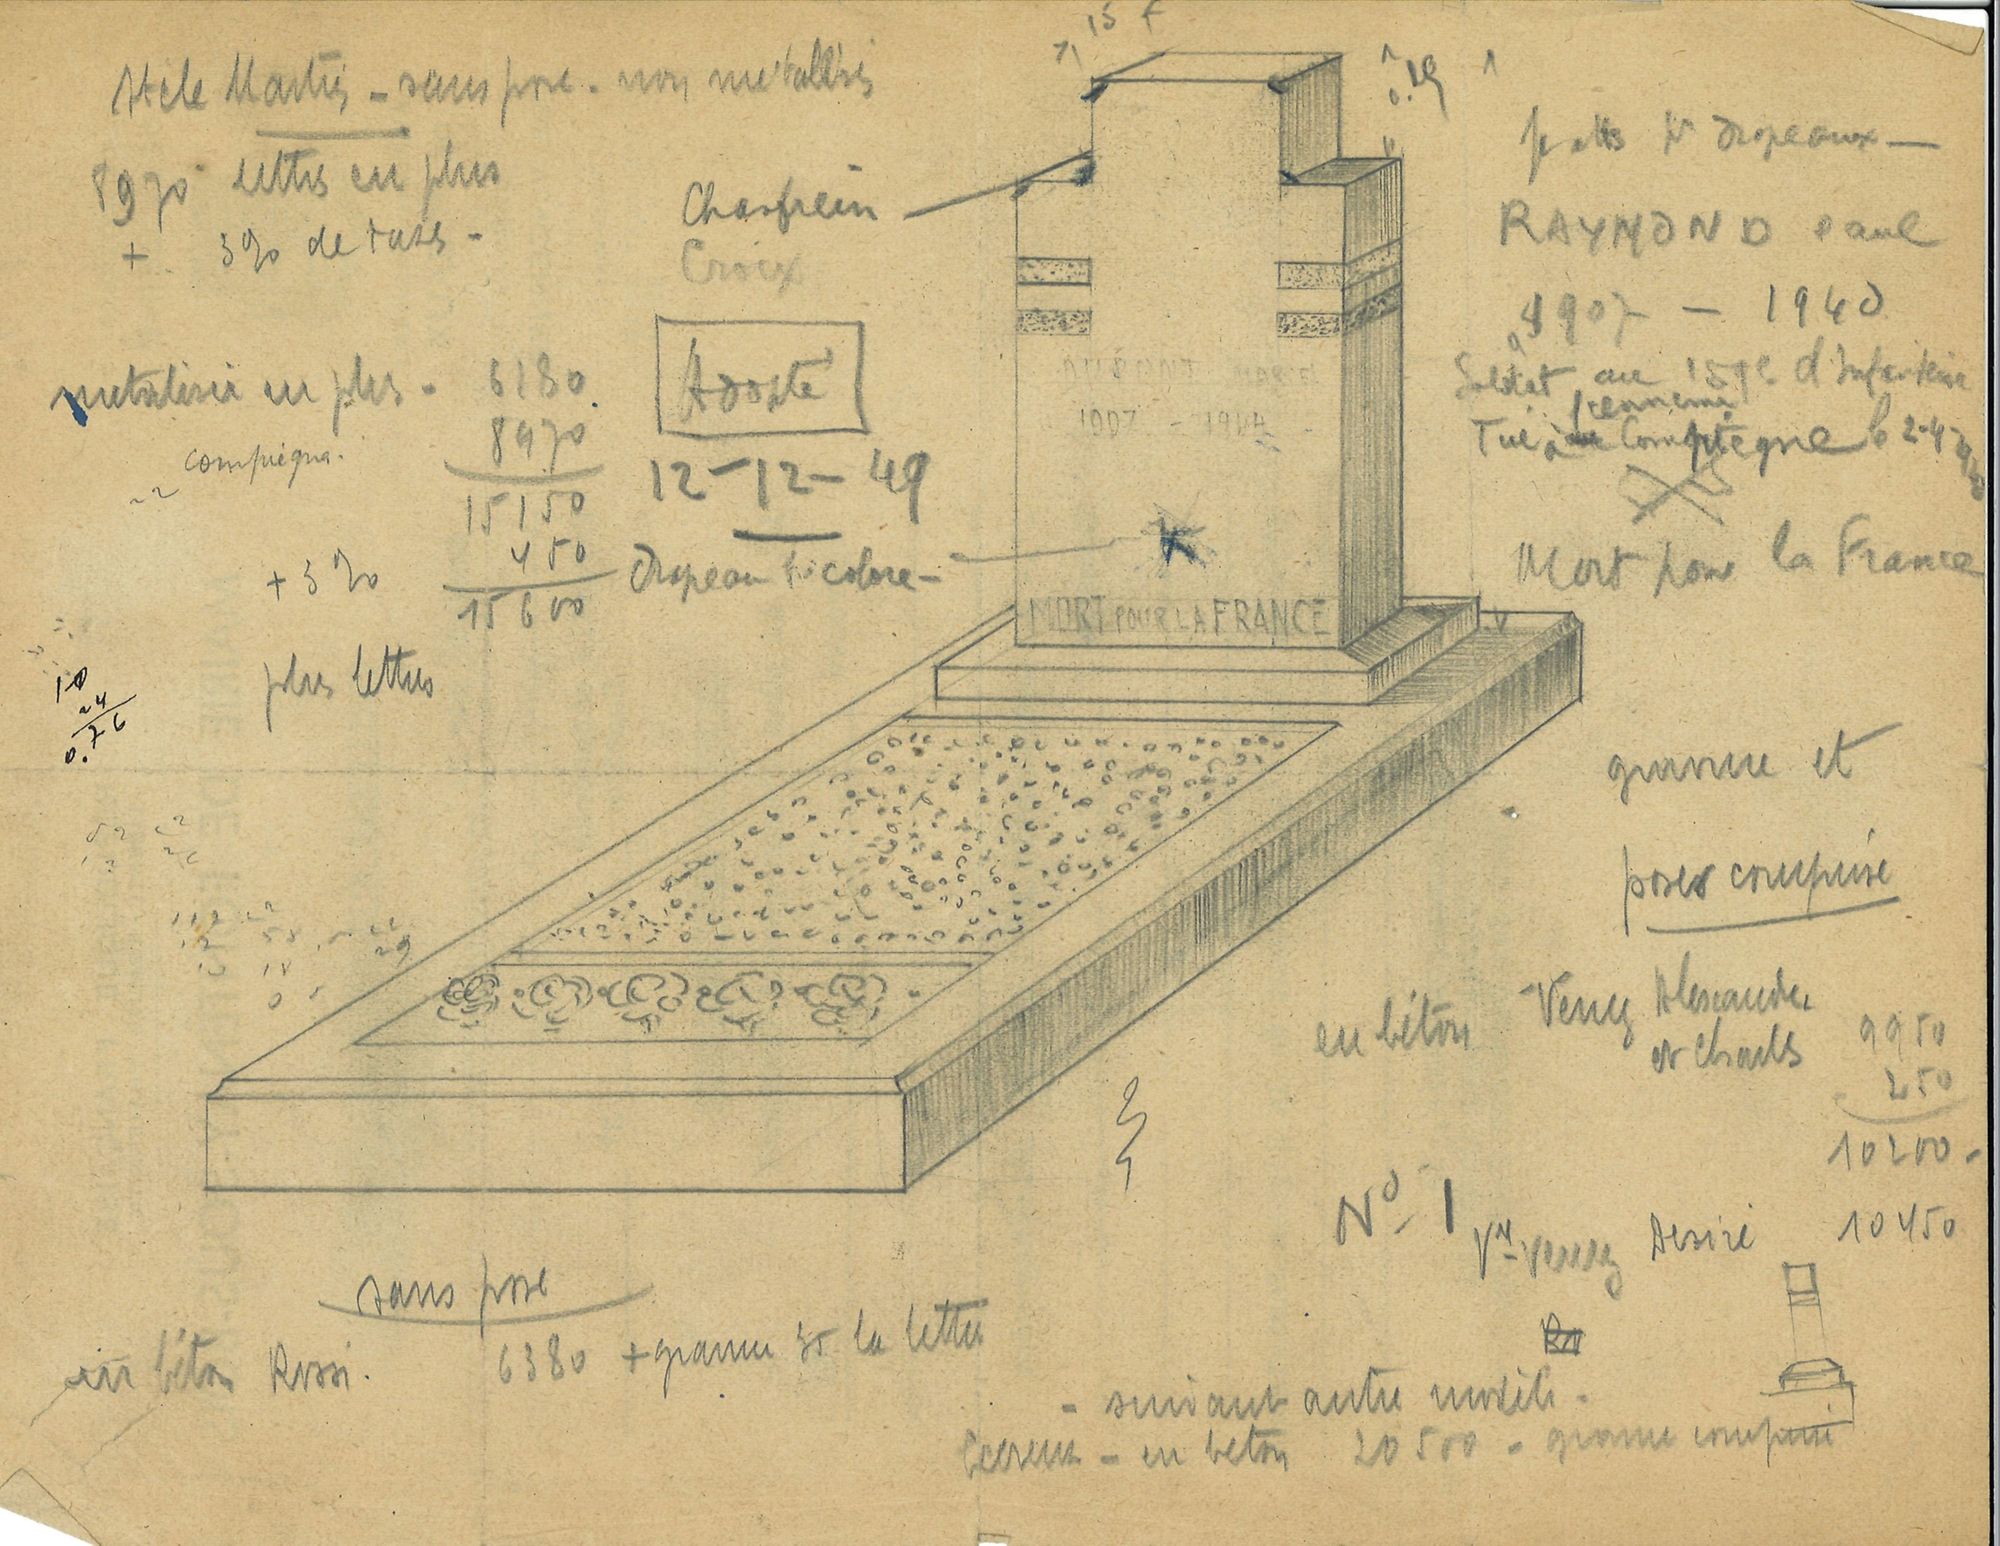 15 F
Stele Martis - sans pose - non metallisé
8970 lettres en plus
+ 3% de taxes -
0.19
Chanfrein
Croix
petits drapeaux —
RAYMOND Paul
1907 — 1940
Soldat au 159e d'Infanterie
l'ennemi
Tué à Compiègne le
Mort pour la France
Adopté
12-12-49
Drapeau tricolore -
en plus - 6180
8970
15150
+ 3% 450
15600
plus lettres
1907 - 1944
MORT POUR LA FRANCE
10
24
0.76
gravure et
pose comprise
en béton Alexandre
et Charles
9950
250
10200 -
No 1
Désiré 10450
sans pose
en béton Rossi. 6380 + gravure 35 la lettre
- suivant autre modèle -
- en béton 20500 - gravure comprise